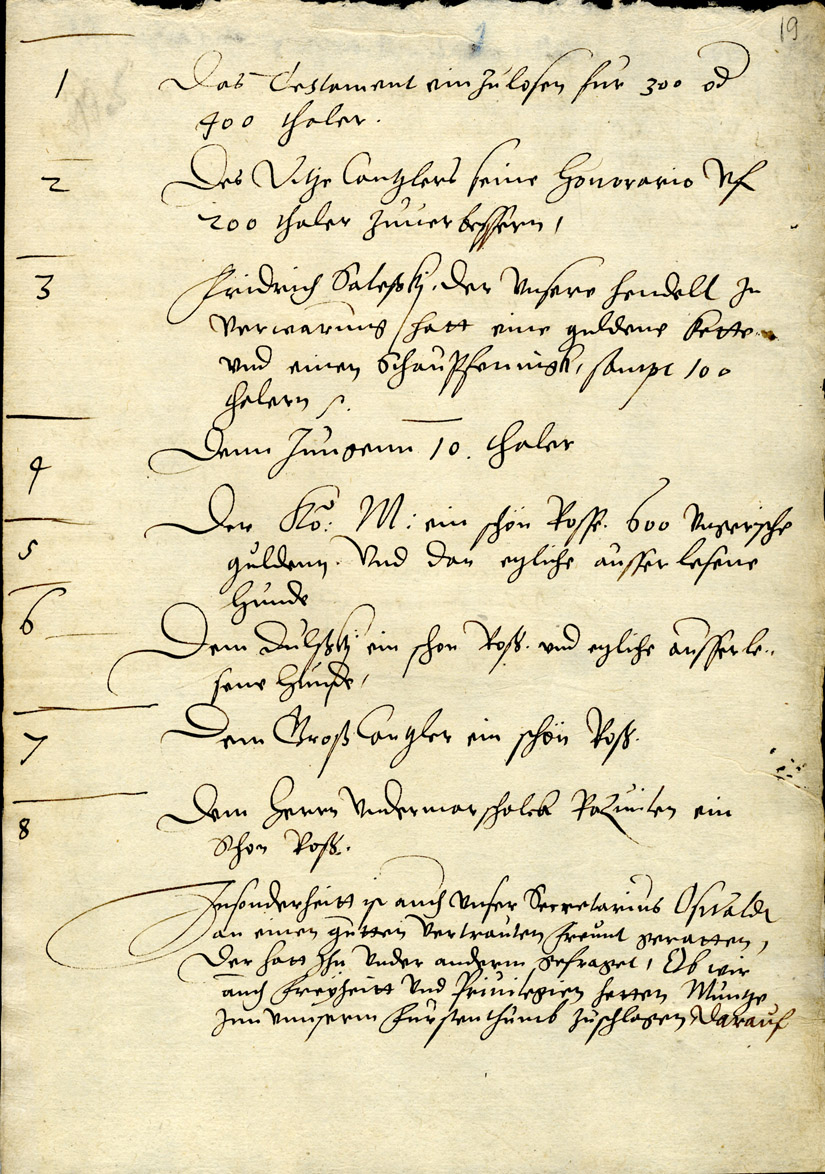 19
1 Das Testament ein Zulosen fur 300 od
400 thaler.
2 Des Vitze Cantzlers seine Honorario Vf
200 thaler Zuuerbessern,
3 Fridrich der Vnsere hendell In
verwarung hatt eine guldene kette
vnd einen Schau Pfennigk, sampt 100
thalern
4 Denn Jungenn 10. thaler
5 Der Kö: M: ein schön Ross. 600 Vngerische
guldenn. Vnd dan etzliche ausserlesene
Hunde
6 Dem ein schon Roß. vnd etzliche ausserle=
sene Hunde,
7 Dem Groß Cantzler ein schön Roß.
8 Dem Herrn Vndermarschalck ein
Schon Roß.
Insonderheitt ist auch vnser Secretarius Oswaldt
an einen gutten vertrauten freunt geratten,
Der hatt Ihn vnder anderm gefraget, Ob wir
auch Freyheitt vnd Priuilegien hetten Muntze
Inn vnnserm Furstenthumb Zuschlagen, Darauf